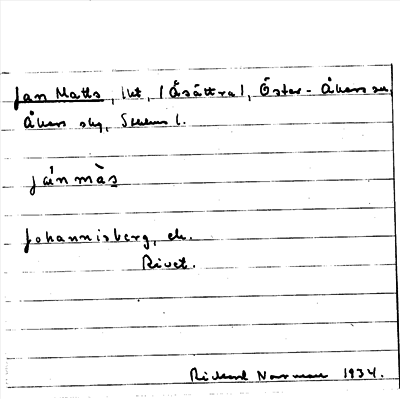 Jan Matts, lht, (Åsättra), Öster-Åkers sn,
Åkers skg, Sthlms l.
jánmàs
Johannisberg, ek.
Rivet.
Rickard Norrman 1934.